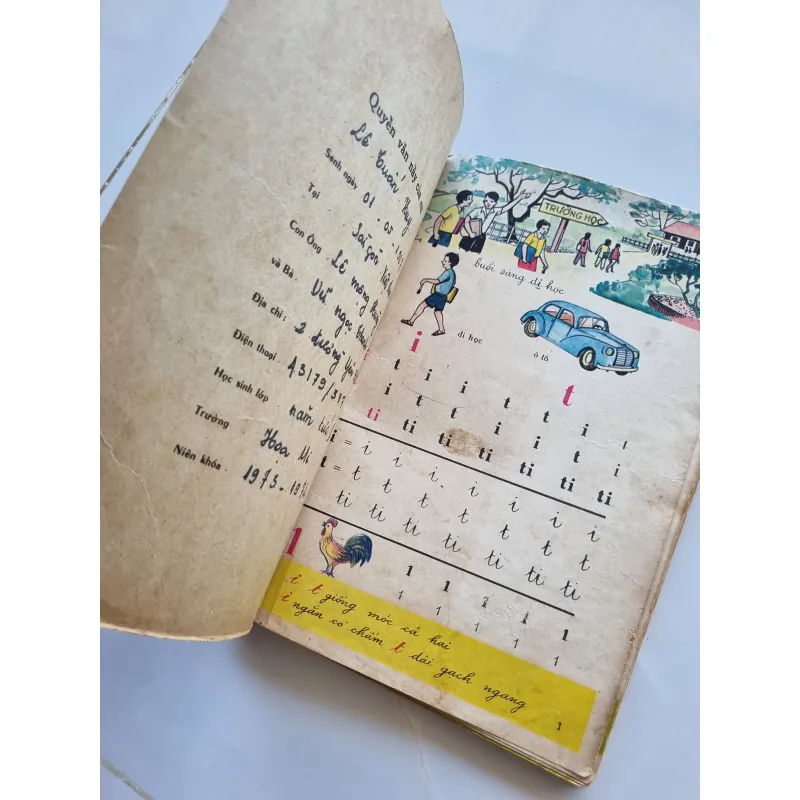 Quyển vần này của
Lê Tuấn
Sanh ngày 01 . 03 .
Tại Saigon
Con Ông Lê mộng
và Bà Vũ ngọc
Địa chỉ : 2 đường
Điện thoại . 43179/
Học sinh lớp năm
Trường . Họa Mi
Niên khóa . 1973 -
TRƯỜNG HỌC
buổi sáng đi học
đi học
ô tô
i
t
t i i t t i
i t t i i t i
ti ti ti ti ti ti ti
i = i i i i i i i
t = t t t t t t t
ti ti ti ti ti ti ti
1
1 1 1 1 1
1 1 1 1 1
i t giống móc cả hai
i ngắn có chấm t dài gạch ngang
1